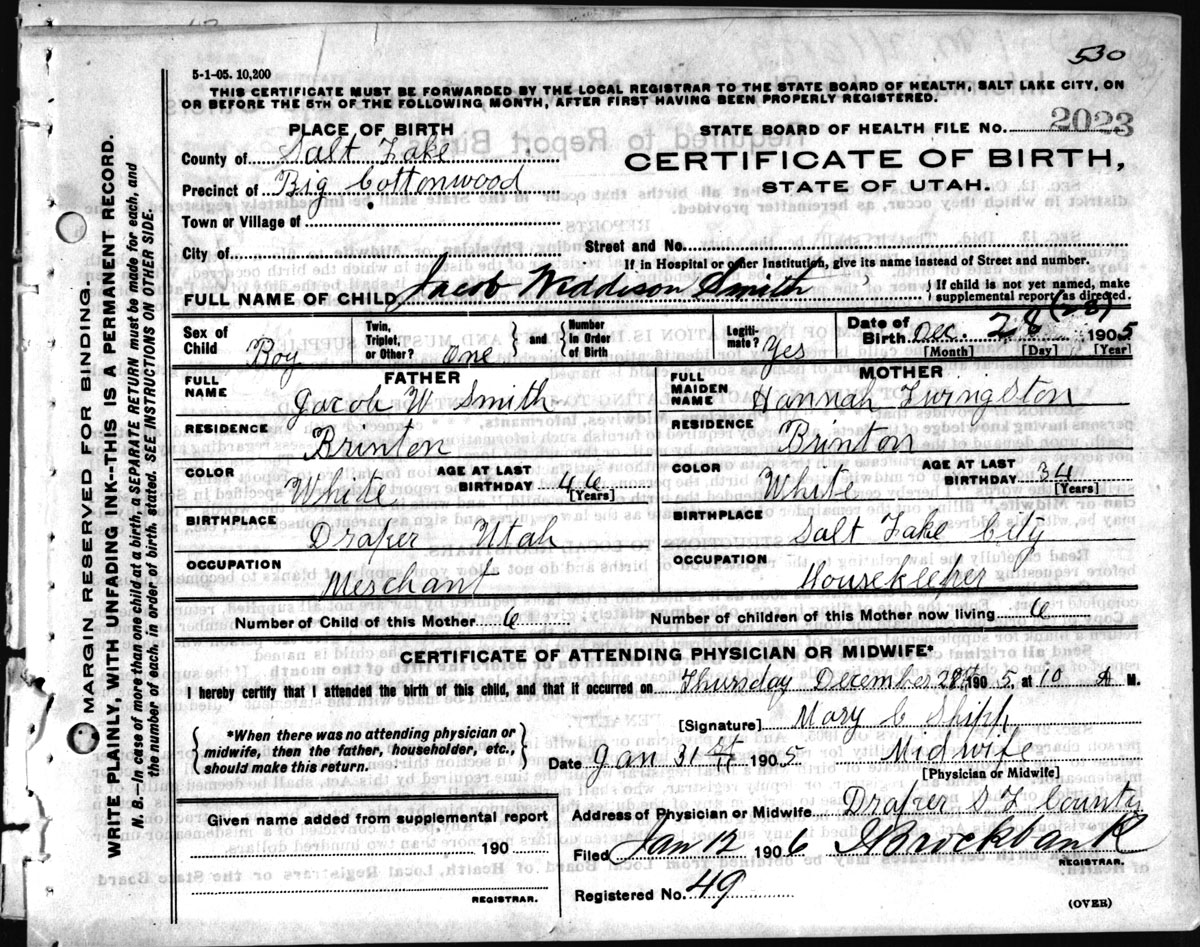 530
5-1-05. 10,200
THIS CERTIFICATE MUST BE FORWARDED BY THE LOCAL REGISTRAR TO THE STATE BOARD OF HEALTH, SALT LAKE CITY, ON
OR BEFORE THE 5TH OF THE FOLLOWING MONTH, AFTER FIRST HAVING BEEN PROPERLY REGISTERED.
PLACE OF BIRTH
STATE BOARD OF HEALTH FILE NO. 2023
County of Salt Lake
CERTIFICATE OF BIRTH,
Precinct of Big Cottonwood
STATE OF UTAH.
Town or Village of
City of Street and No.
If in Hospital or other Institution, give its name instead of Street and number.
FULL NAME OF CHILD Jacob Widdison Smith { If child is not yet named, make supplemental report as directed.
Sex of Child Boy Twin, Triplet, or Other? One } and { Number in Order of Birth Legiti-mate? Yes Date of Birth Dec. 28 (28) 1905
[Month] [Day] [Year]
FATHER MOTHER
FULL NAME Jacob W Smith FULL MAIDEN NAME Hannah Livingston
RESIDENCE Brinton RESIDENCE Brinton
COLOR White AGE AT LAST BIRTHDAY 46 [Years] COLOR White AGE AT LAST BIRTHDAY 34 [Years]
BIRTHPLACE Draper Utah BIRTHPLACE Salt Lake City
OCCUPATION Merchant OCCUPATION Housekeeper
Number of Child of this Mother 6 Number of children of this Mother now living 6
CERTIFICATE OF ATTENDING PHYSICIAN OR MIDWIFE*
I hereby certify that I attended the birth of this child, and that it occurred on Thursday December 28th 1905, at 10 A M.
[Signature] Mary C Shipp
{ *When there was no attending physician or midwife, then the father, householder, etc., should make this return. }
Date Jan 31st 1905 Midwife
[Physician or Midwife]
Given name added from supplemental report
Address of Physician or Midwife Draper S L County
190
Filed Jan 12 1906 Brockbank
REGISTRAR.
Registered No. 49
REGISTRAR.
(OVER)
MARGIN RESERVED FOR BINDING.
WRITE PLAINLY, WITH UNFADING INK--THIS IS A PERMANENT RECORD.
N. B.--In case of more than one child at a birth, a SEPARATE RETURN must be made for each, and
the number of each, in order of birth, stated. SEE INSTRUCTIONS ON OTHER SIDE.